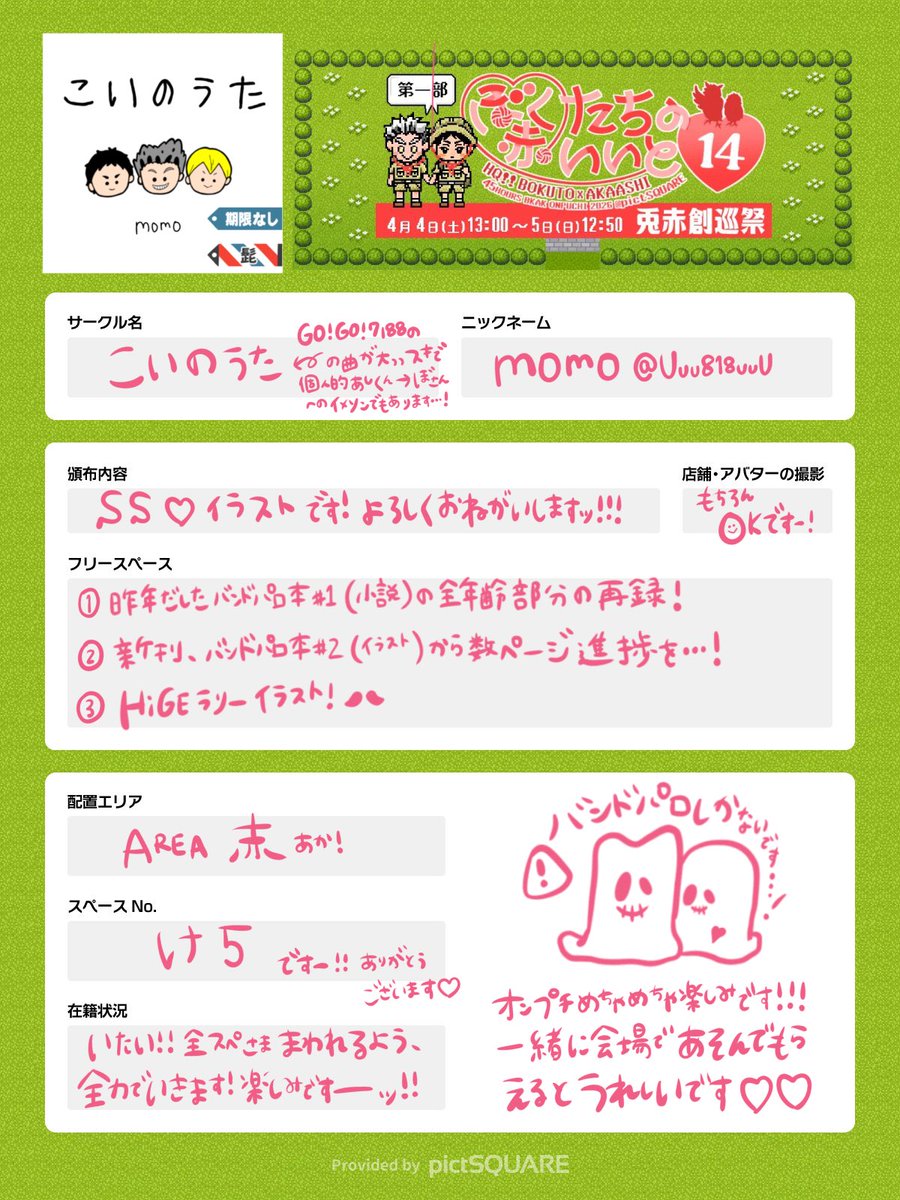 こいのうた
momo
期限なし
髭
第一部
ぼくたちの
赤いいと
14
HQ!! BOKUTO×AKAASHI
45HOURS BKAK ONPUCHI 2026 @pictSQUARE
4月4日(土)13:00～5日(日)12:50 兎赤創巡祭
サークル名
こいのうた
GO!GO!7188の
の曲が大っっスキで
個人的あしくん→ぼさん
へのイメソンでもあります…!
ニックネーム
momo @Uuu818uuU
頒布内容
SS♡イラストです!よろしくおねがいしますッ!!!
店舗・アバターの撮影
もちろん
OKですー!
フリースペース
① 昨年だしたバンドパロ本#1(小説)の全年齢部分の再録!
② 新刊、バンドパロ本#2(イラスト)から数ページ進捗を…!
③ HiGEラリーイラスト!
配置エリア
AREA 赤 あか!
スペースNo.
け5 ですー!! ありがとう
ございます♡
在籍状況
いたい!!全スペさままわれるよう、
全力でいきます!楽しみですーーッ!!
バンドパロしかないです…!
オンプチめちゃめちゃ楽しみです!!!
一緒に会場であそんでもら
えるとうれしいです♡♡
Provided by pictSQUARE